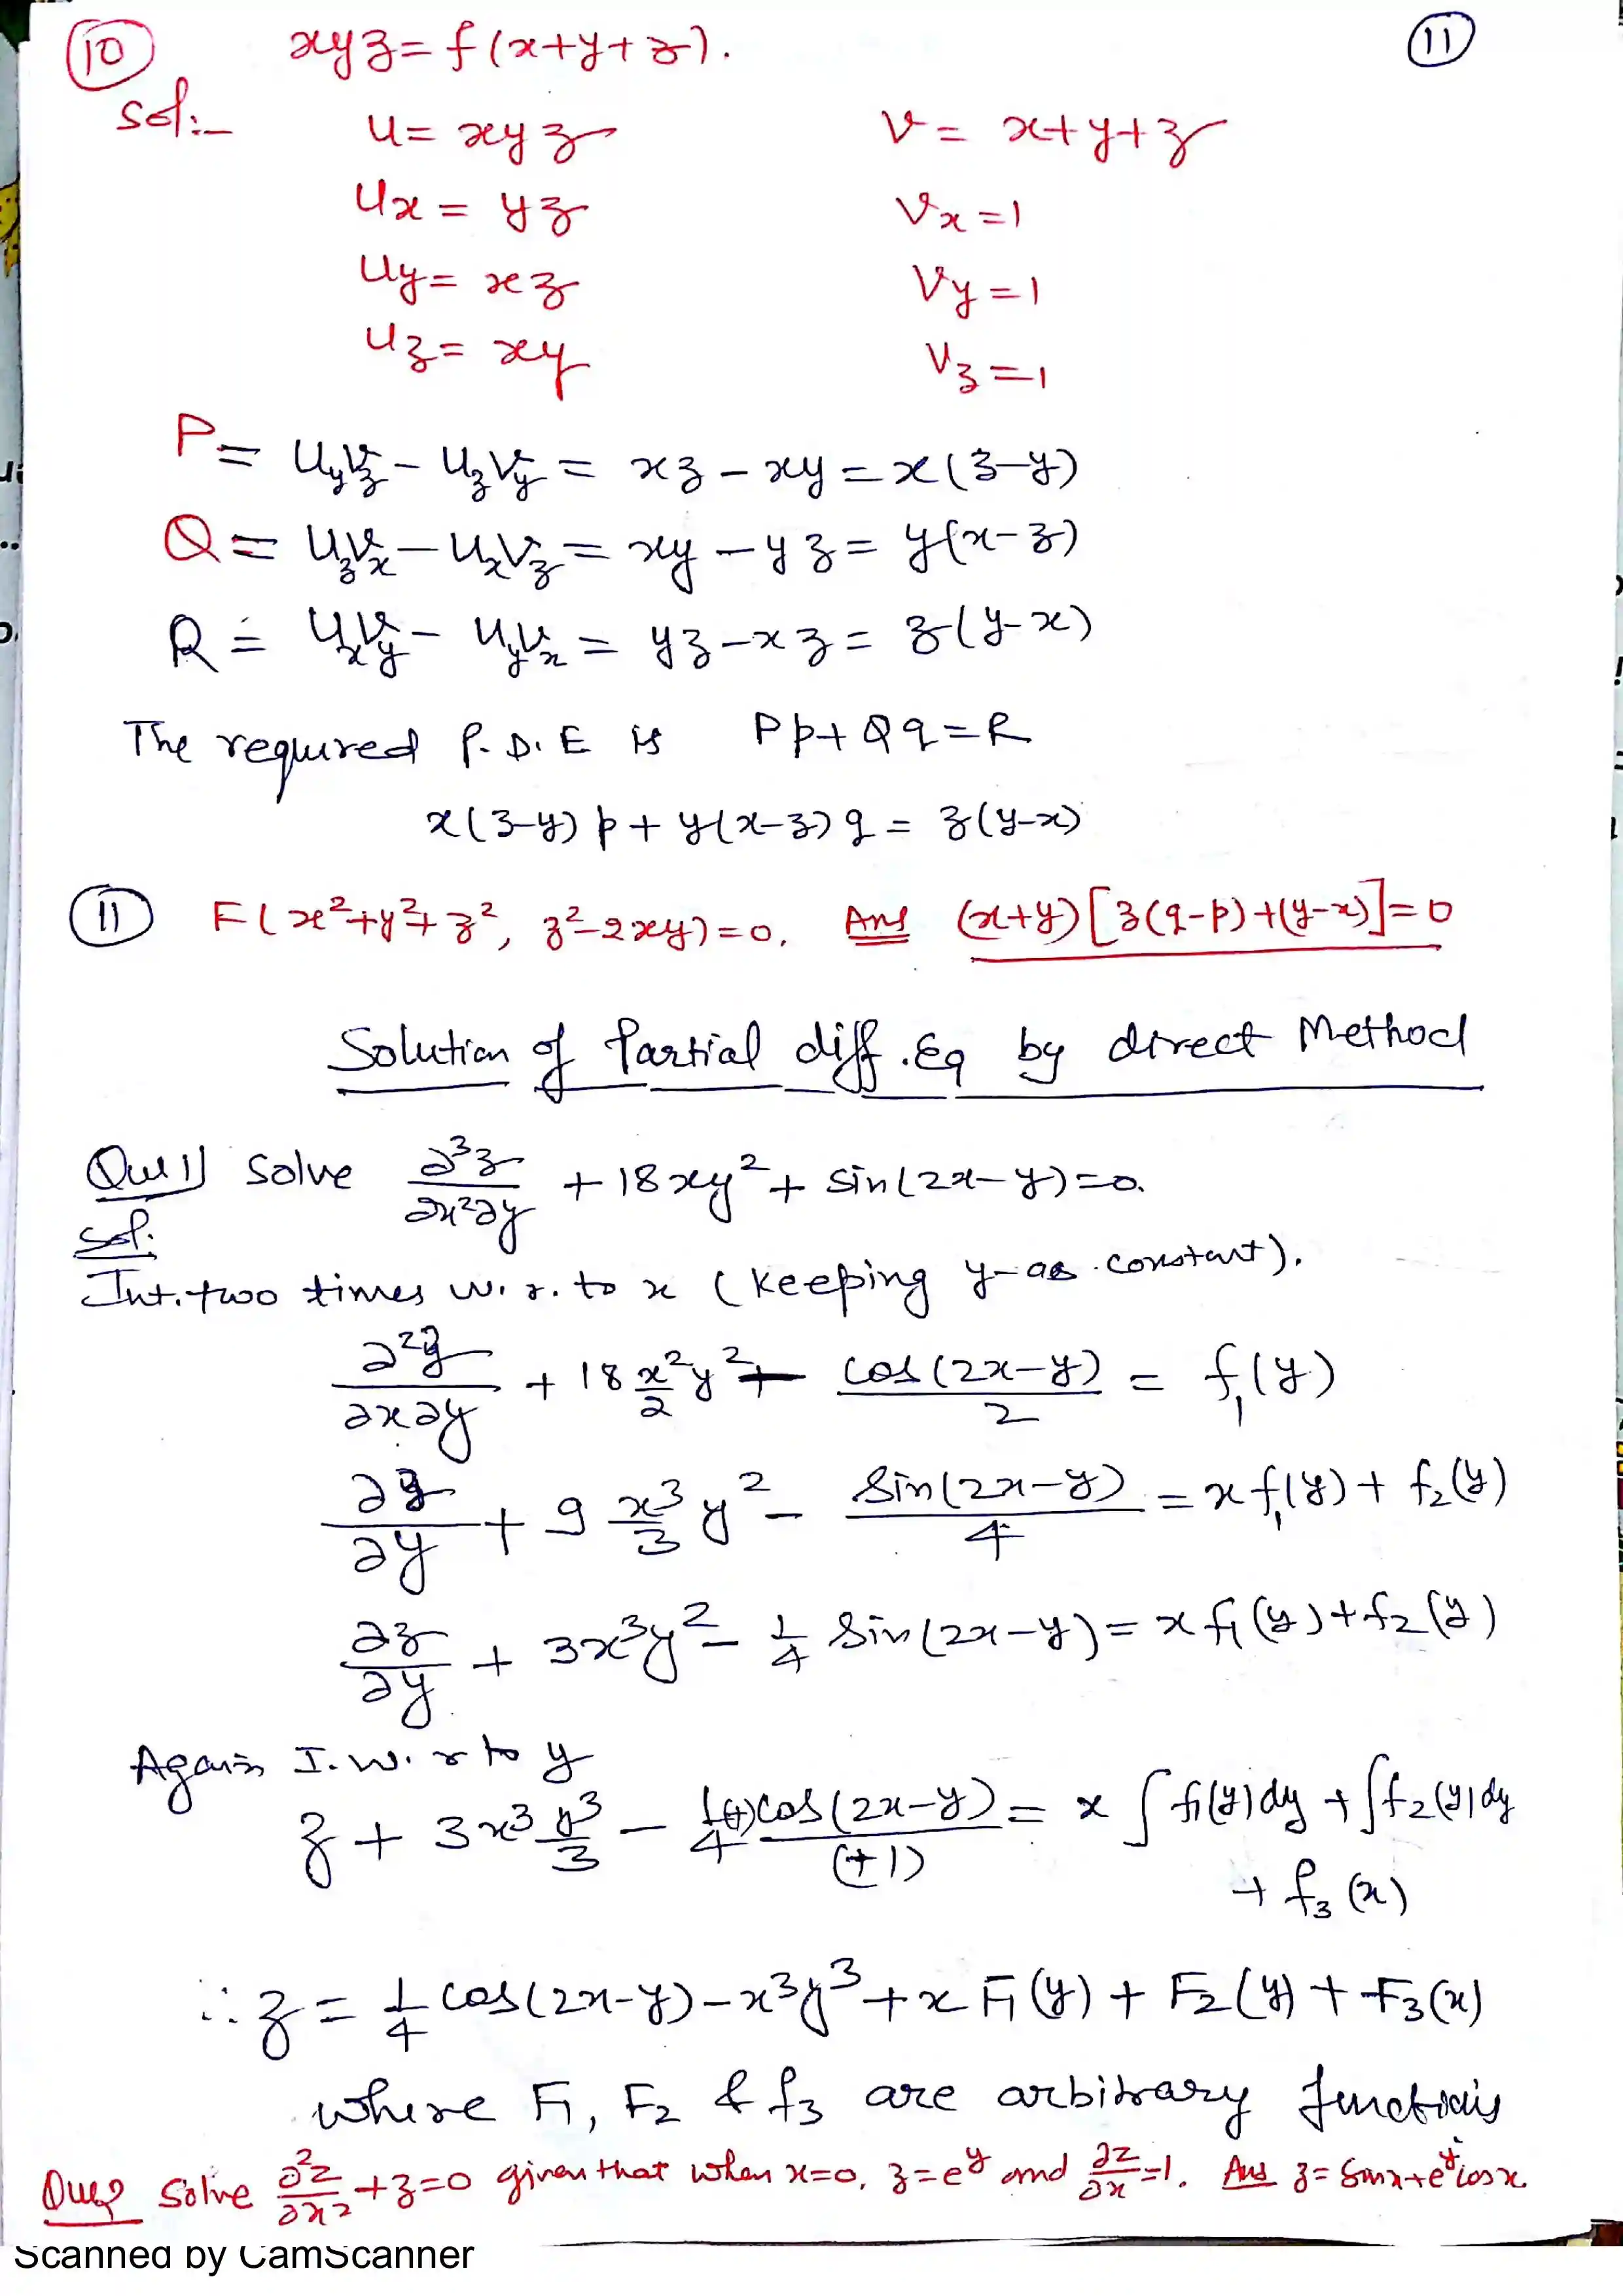 (10) xyz = f(x+y+z). (11)
Sol:-
u = xyz v = x+y+z
ux = yz vx = 1
uy = xz vy = 1
uz = xy vz = 1
P = uyvz - uzvy = xz - xy = x(z-y)
Q = uzvx - uxvz = xy - yz = y(x-z)
R = uxvy - uyvx = yz - xz = z(y-x)
The required P.D.E is Pp + Qq = R
x(z-y)p + y(x-z)q = z(y-x)
(11) F(x²+y²+z², z²-2xy) = 0. Ans (x+y)[z(q-p)+(y-x)] = 0
Solution of Partial diff. Eq by direct Method
Que 1) Solve ∂³z/∂x²∂y + 18xy² + sin(2x-y) = 0.
Sol.
Int. two times w.r. to x (keeping y as constant).
∂²z/∂x∂y + 18 x²/2 y² - cos(2x-y)/2 = f₁(y)
∂z/∂y + 9 x³/3 y² - sin(2x-y)/4 = x f₁(y) + f₂(y)
∂z/∂y + 3x³y² - 1/4 sin(2x-y) = x f₁(y) + f₂(y)
Again I.w.r to y
z + 3x³ y³/3 - 1/4 (+) cos(2x-y)/(+1) = x ∫ f₁(y)dy + ∫ f₂(y)dy
+ f₃(x)
∴ z = 1/4 cos(2x-y) - x³y³ + x F₁(y) + F₂(y) + F₃(x)
where F₁, F₂ & f₃ are arbitrary functions
Que 2 Solve ∂²z/∂x² + z = 0 given that when x=0, z=e^y and ∂z/∂x = 1. Ans z = sinx + e^y cosx.
Scanned by CamScanner